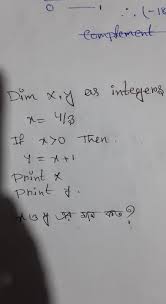 0 — 1 ∴ (-18
complement
Dim x, y as integers
x = 4/3
If x>0 Then
y = x+1
print x
print y.
x ও y এর মান কত?